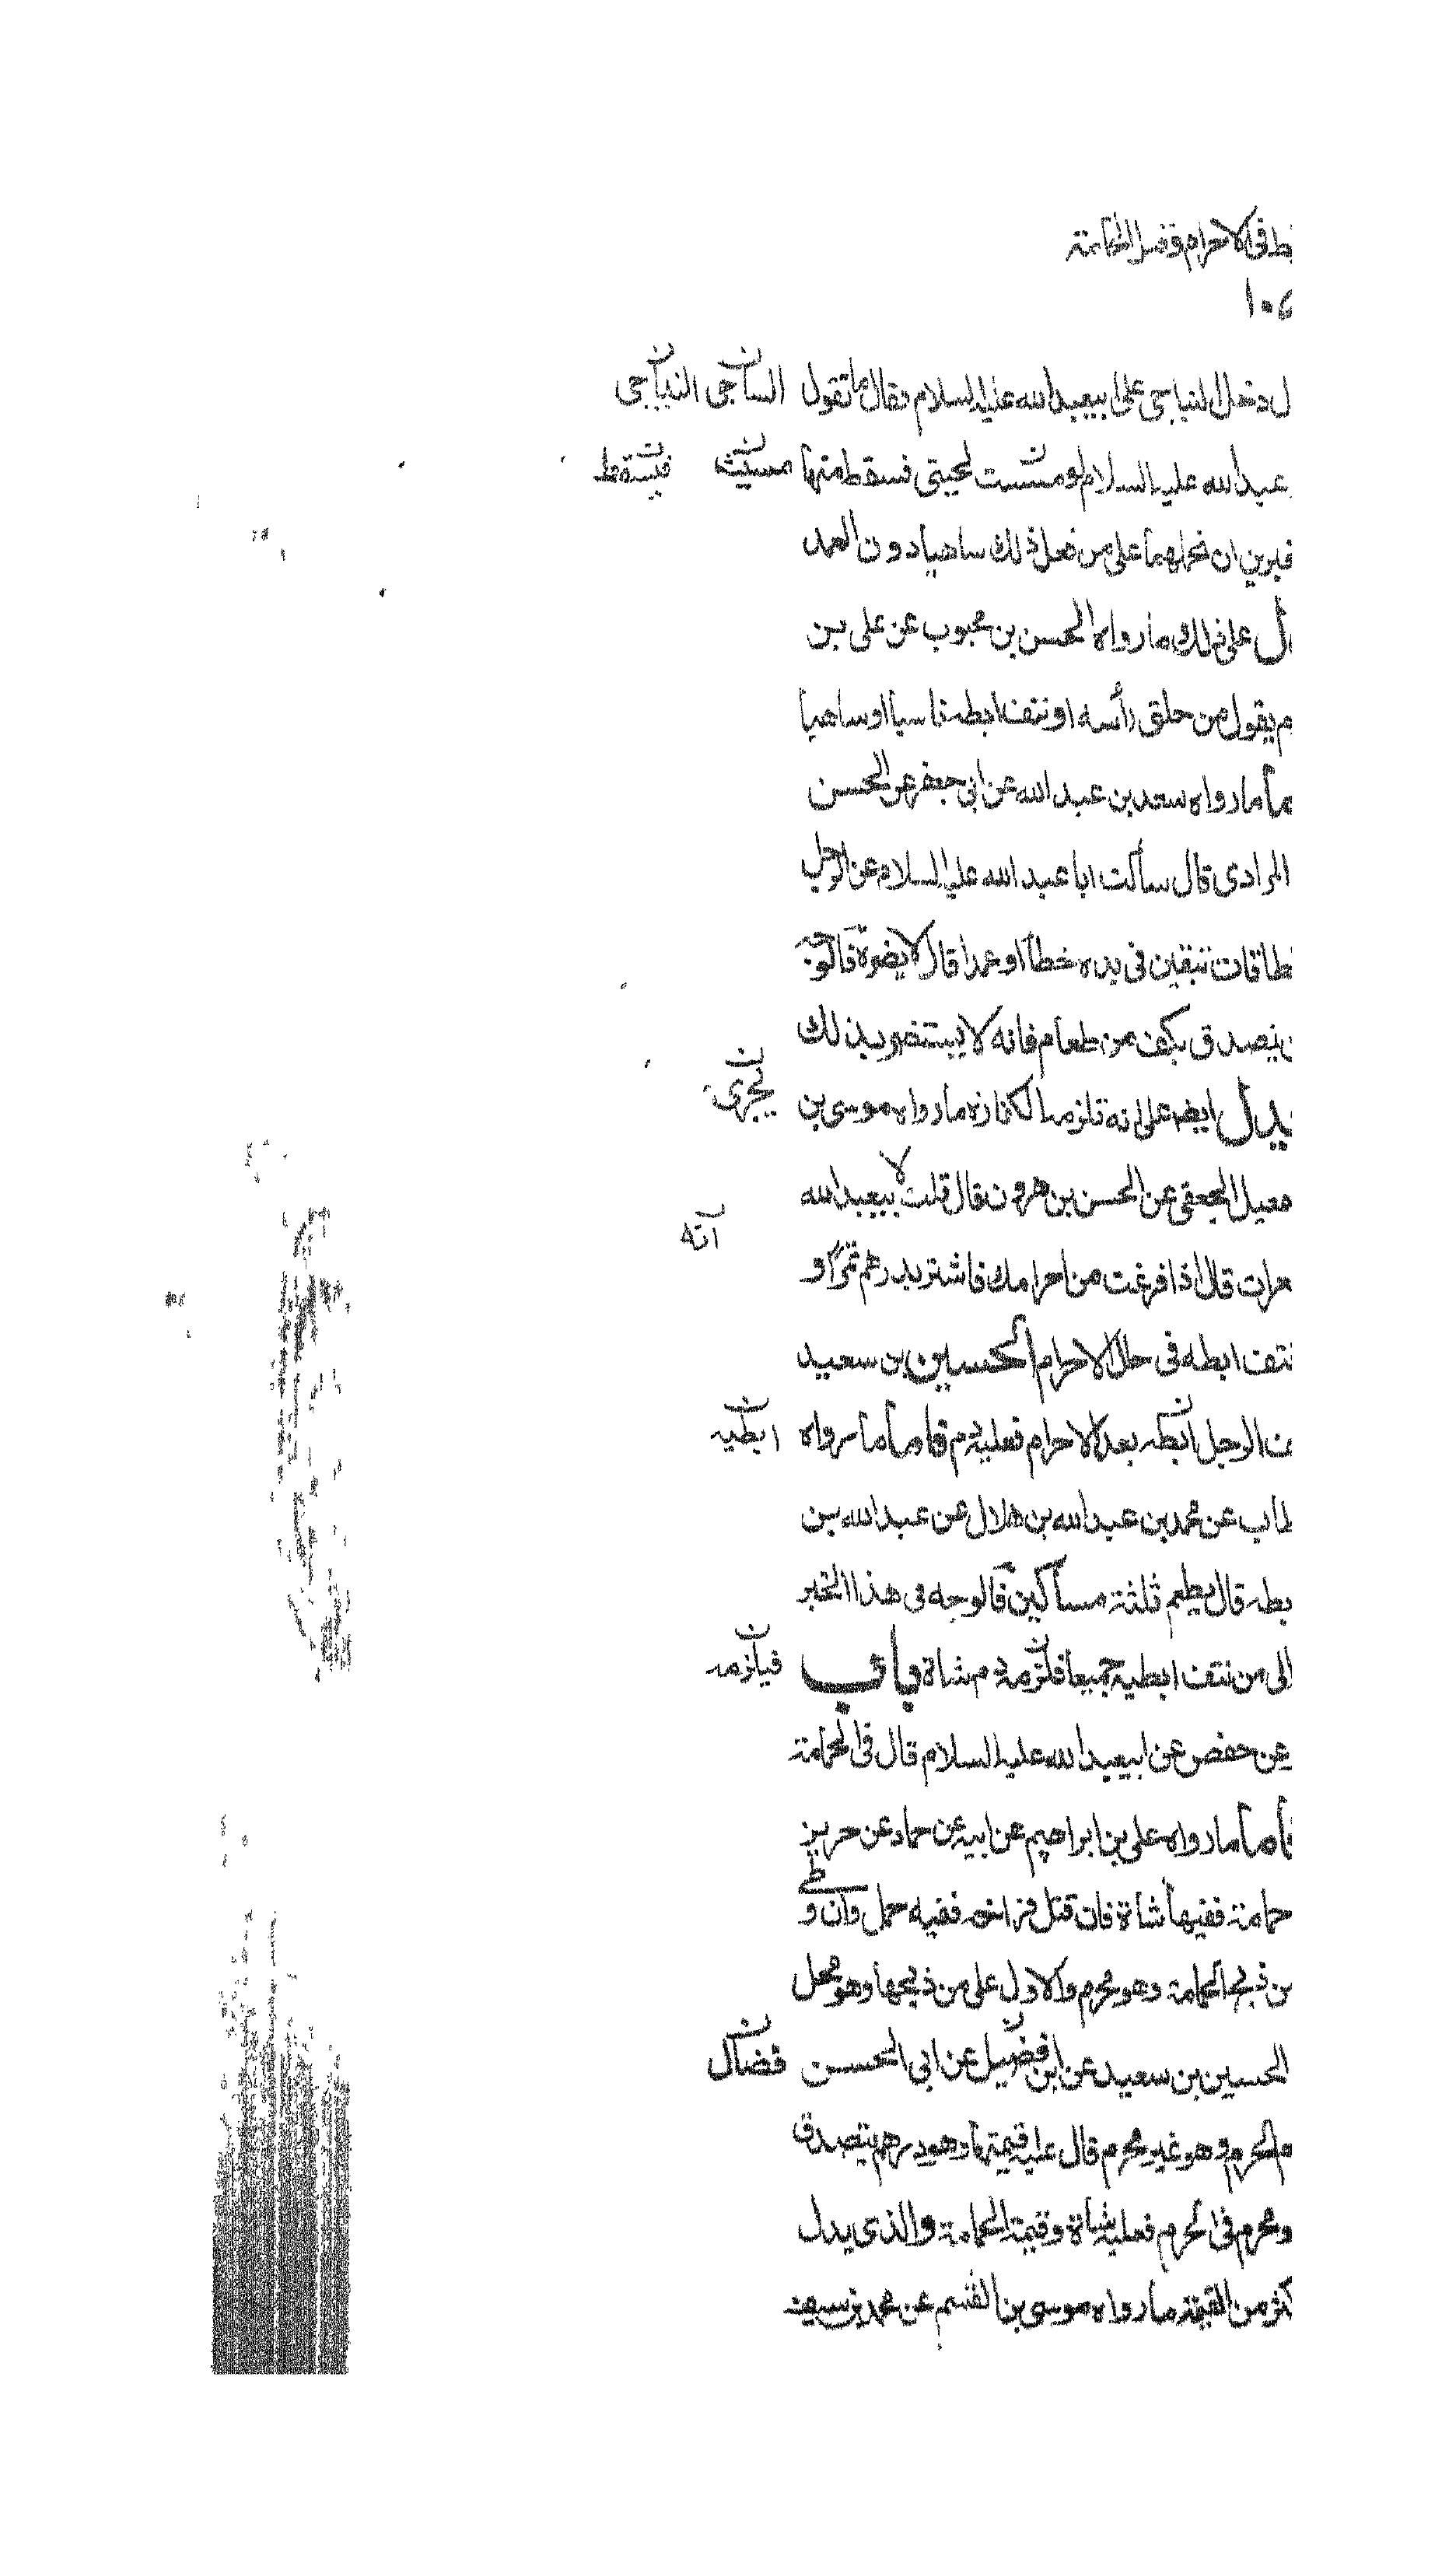 بط فى الاحرام وقتل الحمامة
١٠٥
ل دخل النباجى على ابيعبدالله عليه السلام فقال ما تقول الساجى النباجى
عبدالله عليه السلام لو مسست لحيتى فسقط منها مسيت فيسقط
خبرين ان نحملهما على من فعل ذلك ساهيا دون العمد
دل على ذلك ما رواه الحسن بن محبوب عن على بن
م يقول من حلق رأسه او نتف ابطه ناسيا او ساهيا
ما ما رواه سعد بن عبد الله عن ابى جعفر عن الحسن
المرادى قال سألت ابا عبد الله عليه السلام عن الرجل
طاقات تبقين فى يده خطأ او عمدا قال لا يضره فالوجه
ن يتصدق بكف من طعام فانه لا يستضر بذلك
يدل ايضا على انه تلزمه الكفارة ما رواه موسى بن يجزى
معيل الجعفى عن الحسن بن هرون قال قلت لابيعبدالله
مرات قال اذا فرغت من احرامك فاشتر بدرهم تمرا و انه
نتف ابطه فى حال الاحرام الحسين بن سعيد
ف الرجل ابطه بعد الاحرام فعليه دم فاما ما رواه ابطيه
طاب عن محمد بن عبدالله بن هلال عن عبدالله بن
بطه قال يطعم ثلثة مساكين فالوجه فى هذا الخبر
الى من نتف ابطيه جميعا فلزمه دم شاة باب فيلزمه
عن حفص عن ابيعبدالله عليه السلام قال فى الحمامة
فأما ما رواه على بن ابراهيم عن ابيه عن حماد عن حريز
حمامة ففيها شاة فان قتل فراخه ففيه حمل وان و
من ذبح الحمامة وهو محرم والاول على من ذبحها وهو محل
الحسين بن سعيد عن ابن فضيل عن ابى الحسن فضال
م الحرم وهو غير محرم قال عليه قيمتها وهو درهم يتصدق
و محرم فى الحرم فعليه شاة وقيمة الحمامة والذى يدل
كثر من القيمة ما رواه موسى بن القسم عن محمد بن سيف